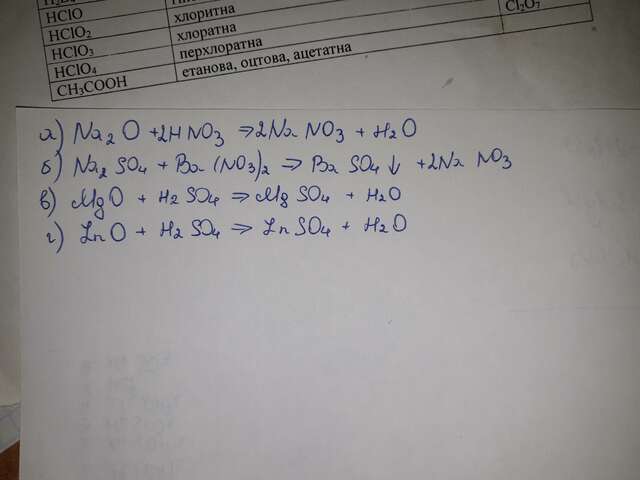 HClO
хлоритна
HClO₂
хлоратна
Cl₂O₇
HClO₃
перхлоратна
HClO₄
етанова, оцтова, ацетатна
CH₃COOH
а) Na₂O + 2HNO₃ ⇒ 2NaNO₃ + H₂O
б) Na₂SO₄ + Ba(NO₃)₂ ⇒ BaSO₄↓ + 2NaNO₃
в) MgO + H₂SO₄ ⇒ MgSO₄ + H₂O
г) ZnO + H₂SO₄ ⇒ ZnSO₄ + H₂O